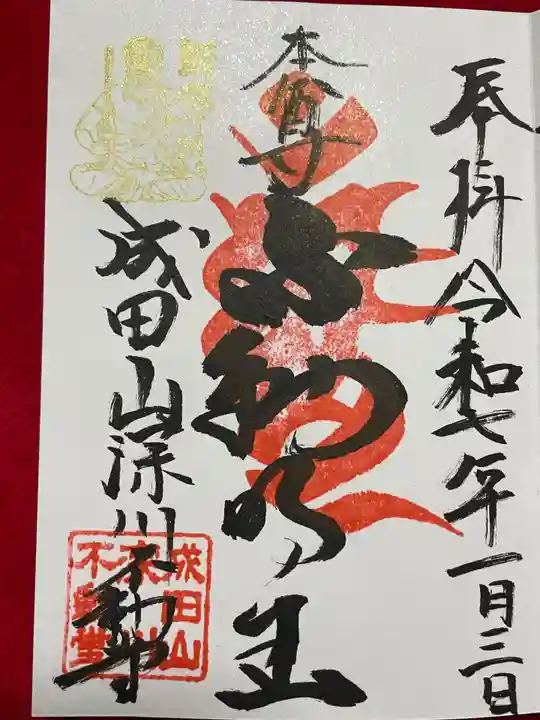 奉拝 令和七年一月三日
本尊 不動明王
成田山深川不動尊
成田山
深川
不動堂